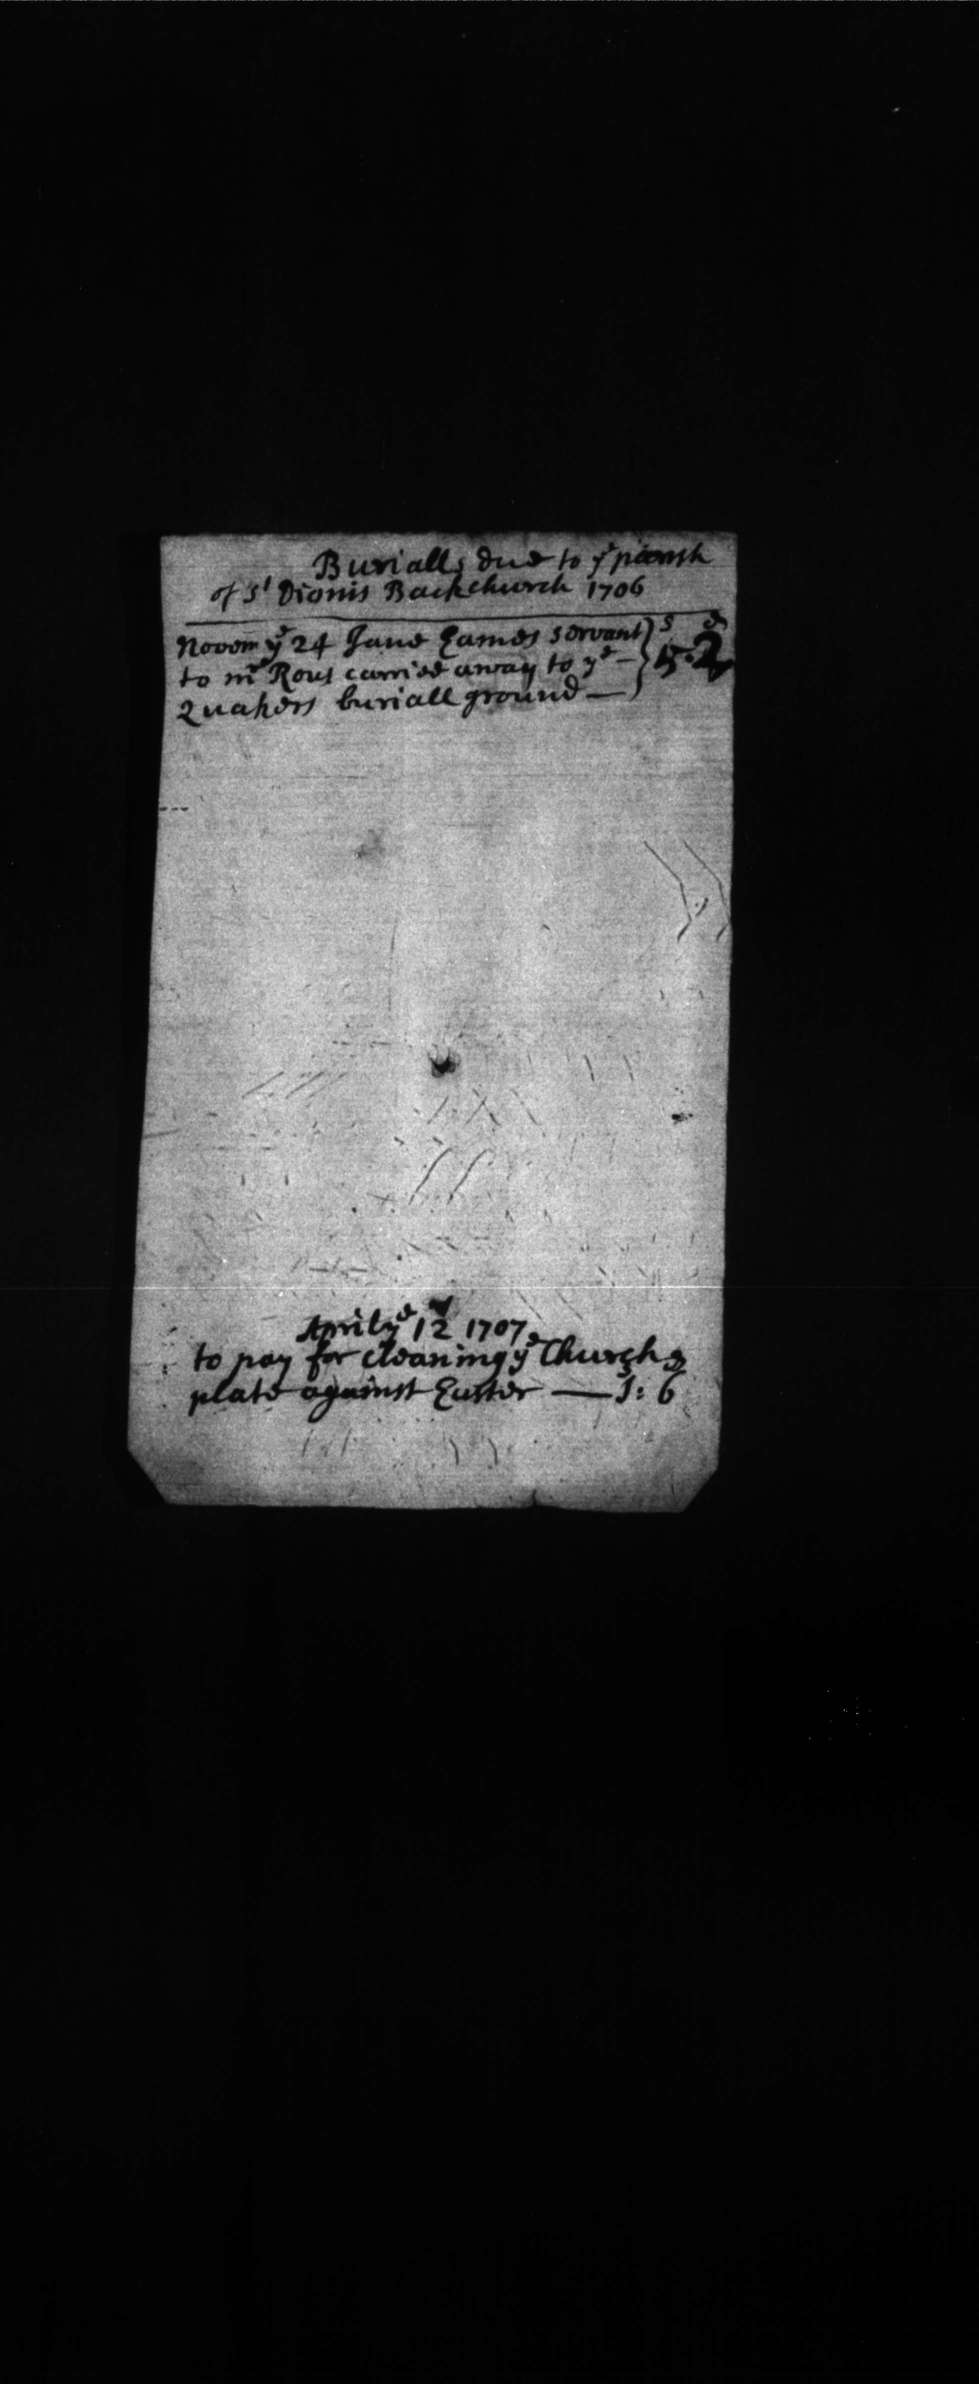 Burialls due to ye parish
of St Dionis Backchurch 1706
Novem ye 24 Jane Eames servant } s d
to mr Rous carried away to ye – } 5 . 2
Quakers buriall ground —
April ye 12 1707
to pay for cleaning ye Church s d
plate against Easter — 1 : 6